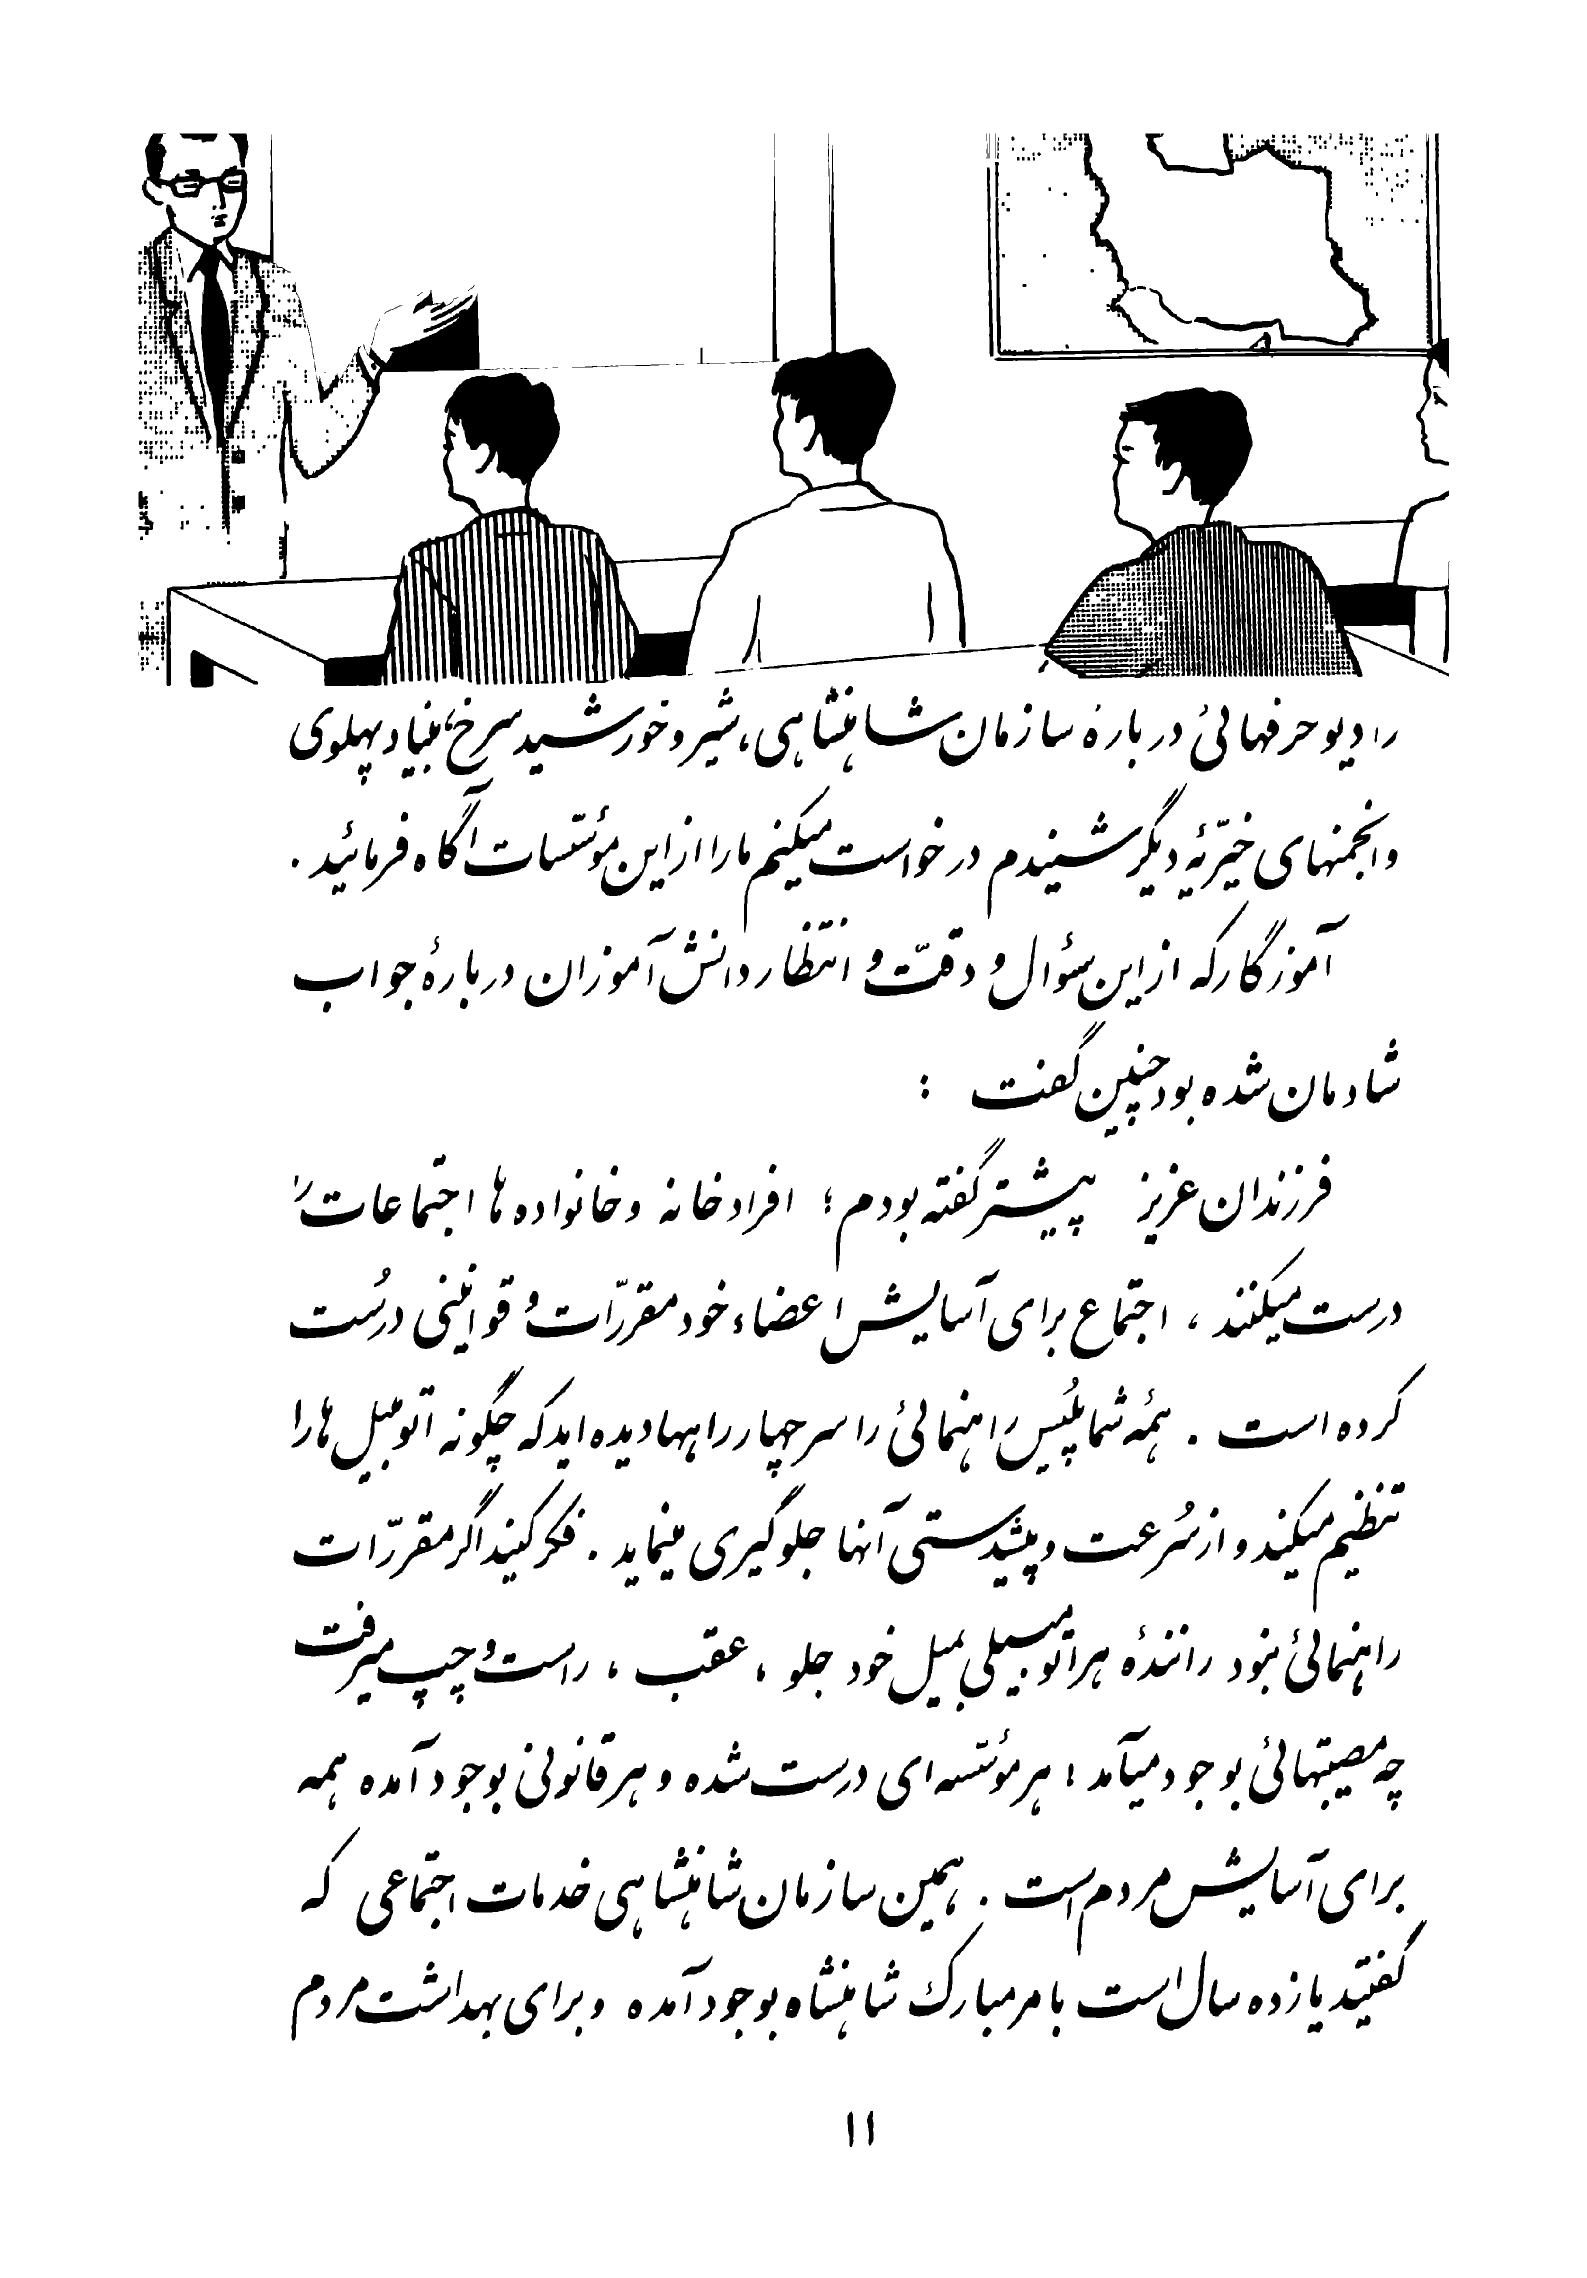 رادیو حرفهائی درباره سازمان شاهنشاهی، شیر و خورشید سرخ، بنیاد پهلوی
و انجمنهای خیّریهٔ دیگر شنیدم درخواست میکنم ما را از این مؤسّسات آگاه فرمائید .
آموزگار که از این سؤال و دقّت و انتظار دانش آموزان دربارهٔ جواب
شادمان شده بود چنین گفت :
فرزندان عزیز پیشتر گفته بودم ؛ افراد خانه و خانواده ها اجتماعات را
درست میکنند ، اجتماع برای آسایش اعضاء خود مقررّات و قوانینی درُست
کرده است . همهٔ شما پُلیس راهنمائی را سر چهارراهها دیده اید که چگونه اتومبیل ها را
تنظیم میکند و از سُرعت و پیشدستی آنها جلوگیری مینماید . فکر کنید اگر مقررّات
راهنمائی نبود رانندهٔ هر اتومبیلی بمیل خود جلو ، عقب ، راست و چپ میرفت
چه مصیبتهائی بوجود میآمد ؛ هر مؤسّسه ای درست شده و هر قانونی بوجود آمده همه
برای آسایش مردم است . همین سازمان شاهنشاهی خدمات اجتماعی که
گفتید یازده سال است بامر مبارک شاهنشاه بوجود آمده و برای بهداشت مردم
۱۱